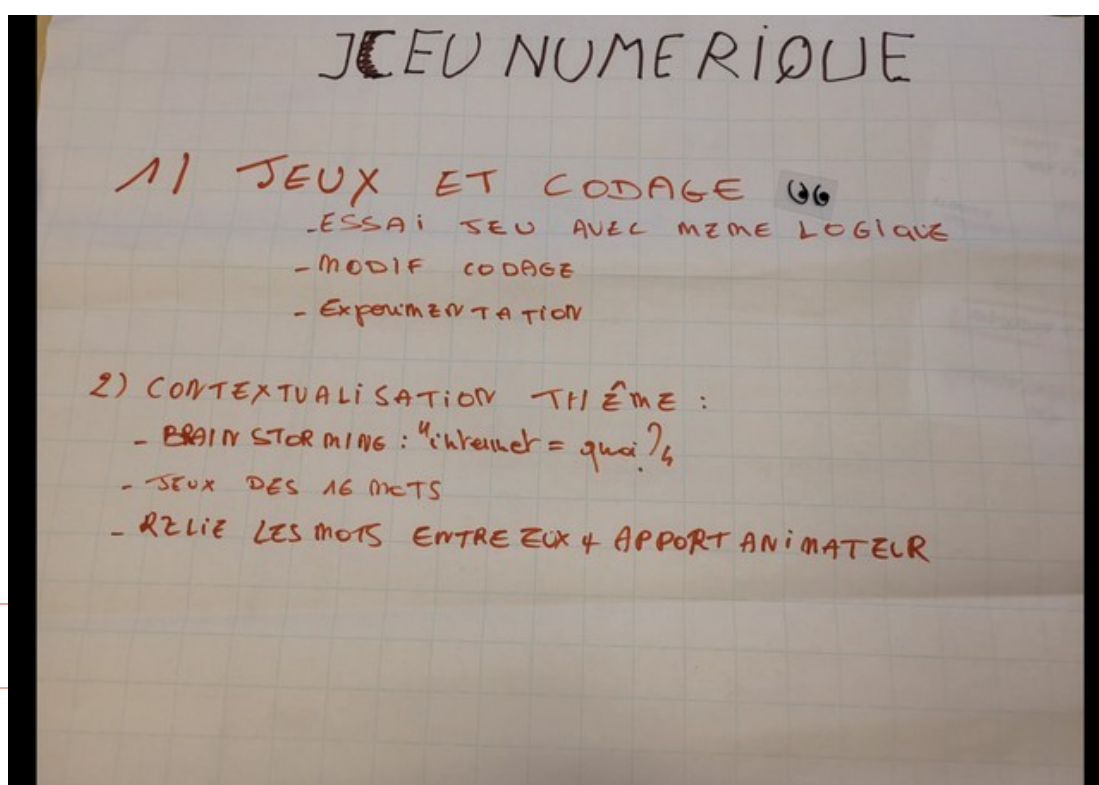 JEU NUMERIQUE
1) JEUX ET CODAGE
- ESSAI JEU AVEC MEME LOGIQUE
- MODIF CODAGE
- ExperimENTATION
2) CONTEXTUALISATION THÊME :
- BRAIN STORMING : "internet = quoi ?"
- JEUX DES 16 MOTS
- RELIE LES MOTS ENTRE EUX + APPORT ANIMATEUR